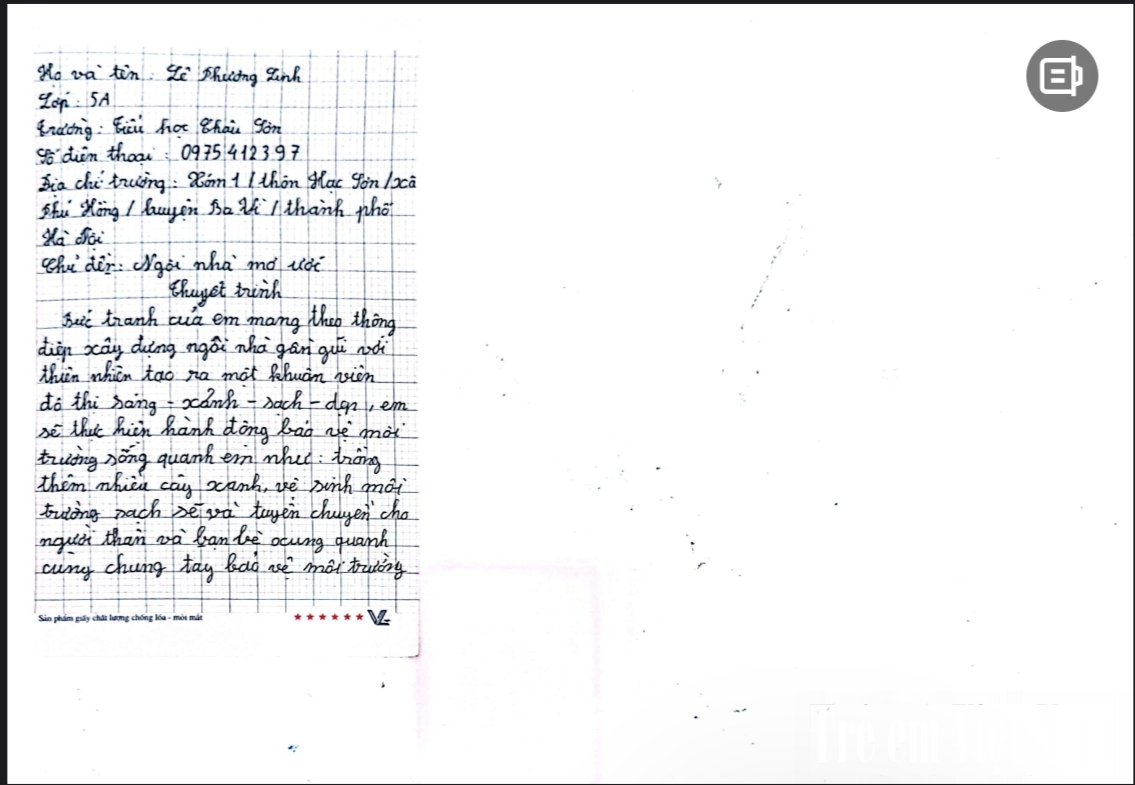 Họ và tên : Lê Phương Linh
Lớp : 5A
Trường : Tiểu học Châu Sơn
Số điện thoại : 0975412397
Địa chỉ trường : Xóm 1 / thôn Hạc Sơn / xã
Phú Hồng / huyện Ba Vì / thành phố
Hà Nội
Chủ đề : Ngôi nhà mơ ước
Thuyết trình
Bức tranh của em mang theo thông
điệp xây dựng ngôi nhà gần gũi với
thiên nhiên tạo ra một khuân viên
đô thị sáng - xanh - sạch - đẹp, em
sẽ thực hiện hành động bảo vệ môi
trường sống quanh em như : trồng
thêm nhiều cây xanh, vệ sinh môi
trường sạch sẽ và tuyên chuyền cho
người thân và bạn bè xung quanh
cùng chung tay bảo vệ môi trường
Sản phẩm giấy chất lượng chống lóa - mỏi mắt
VL
Tre em